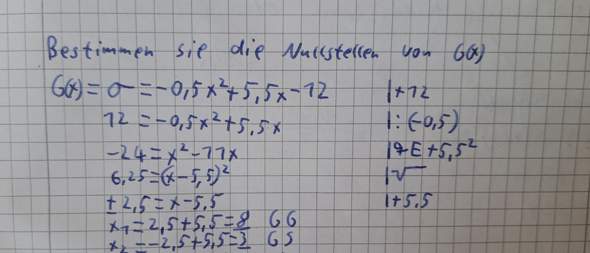 Bestimmen sie die Nullstellen von G(x)
G(x) = 0 = -0,5x²+5,5x-12 |+12
12 = -0,5x²+5,5x |:(-0,5)
-24 = x²-11x |qE+5,5²
6,25 = (x-5,5)² |√
±2,5 = x-5,5 |+5,5
x₁ = 2,5+5,5 = 8 GG
x₂ = -2,5+5,5 = 3 GS